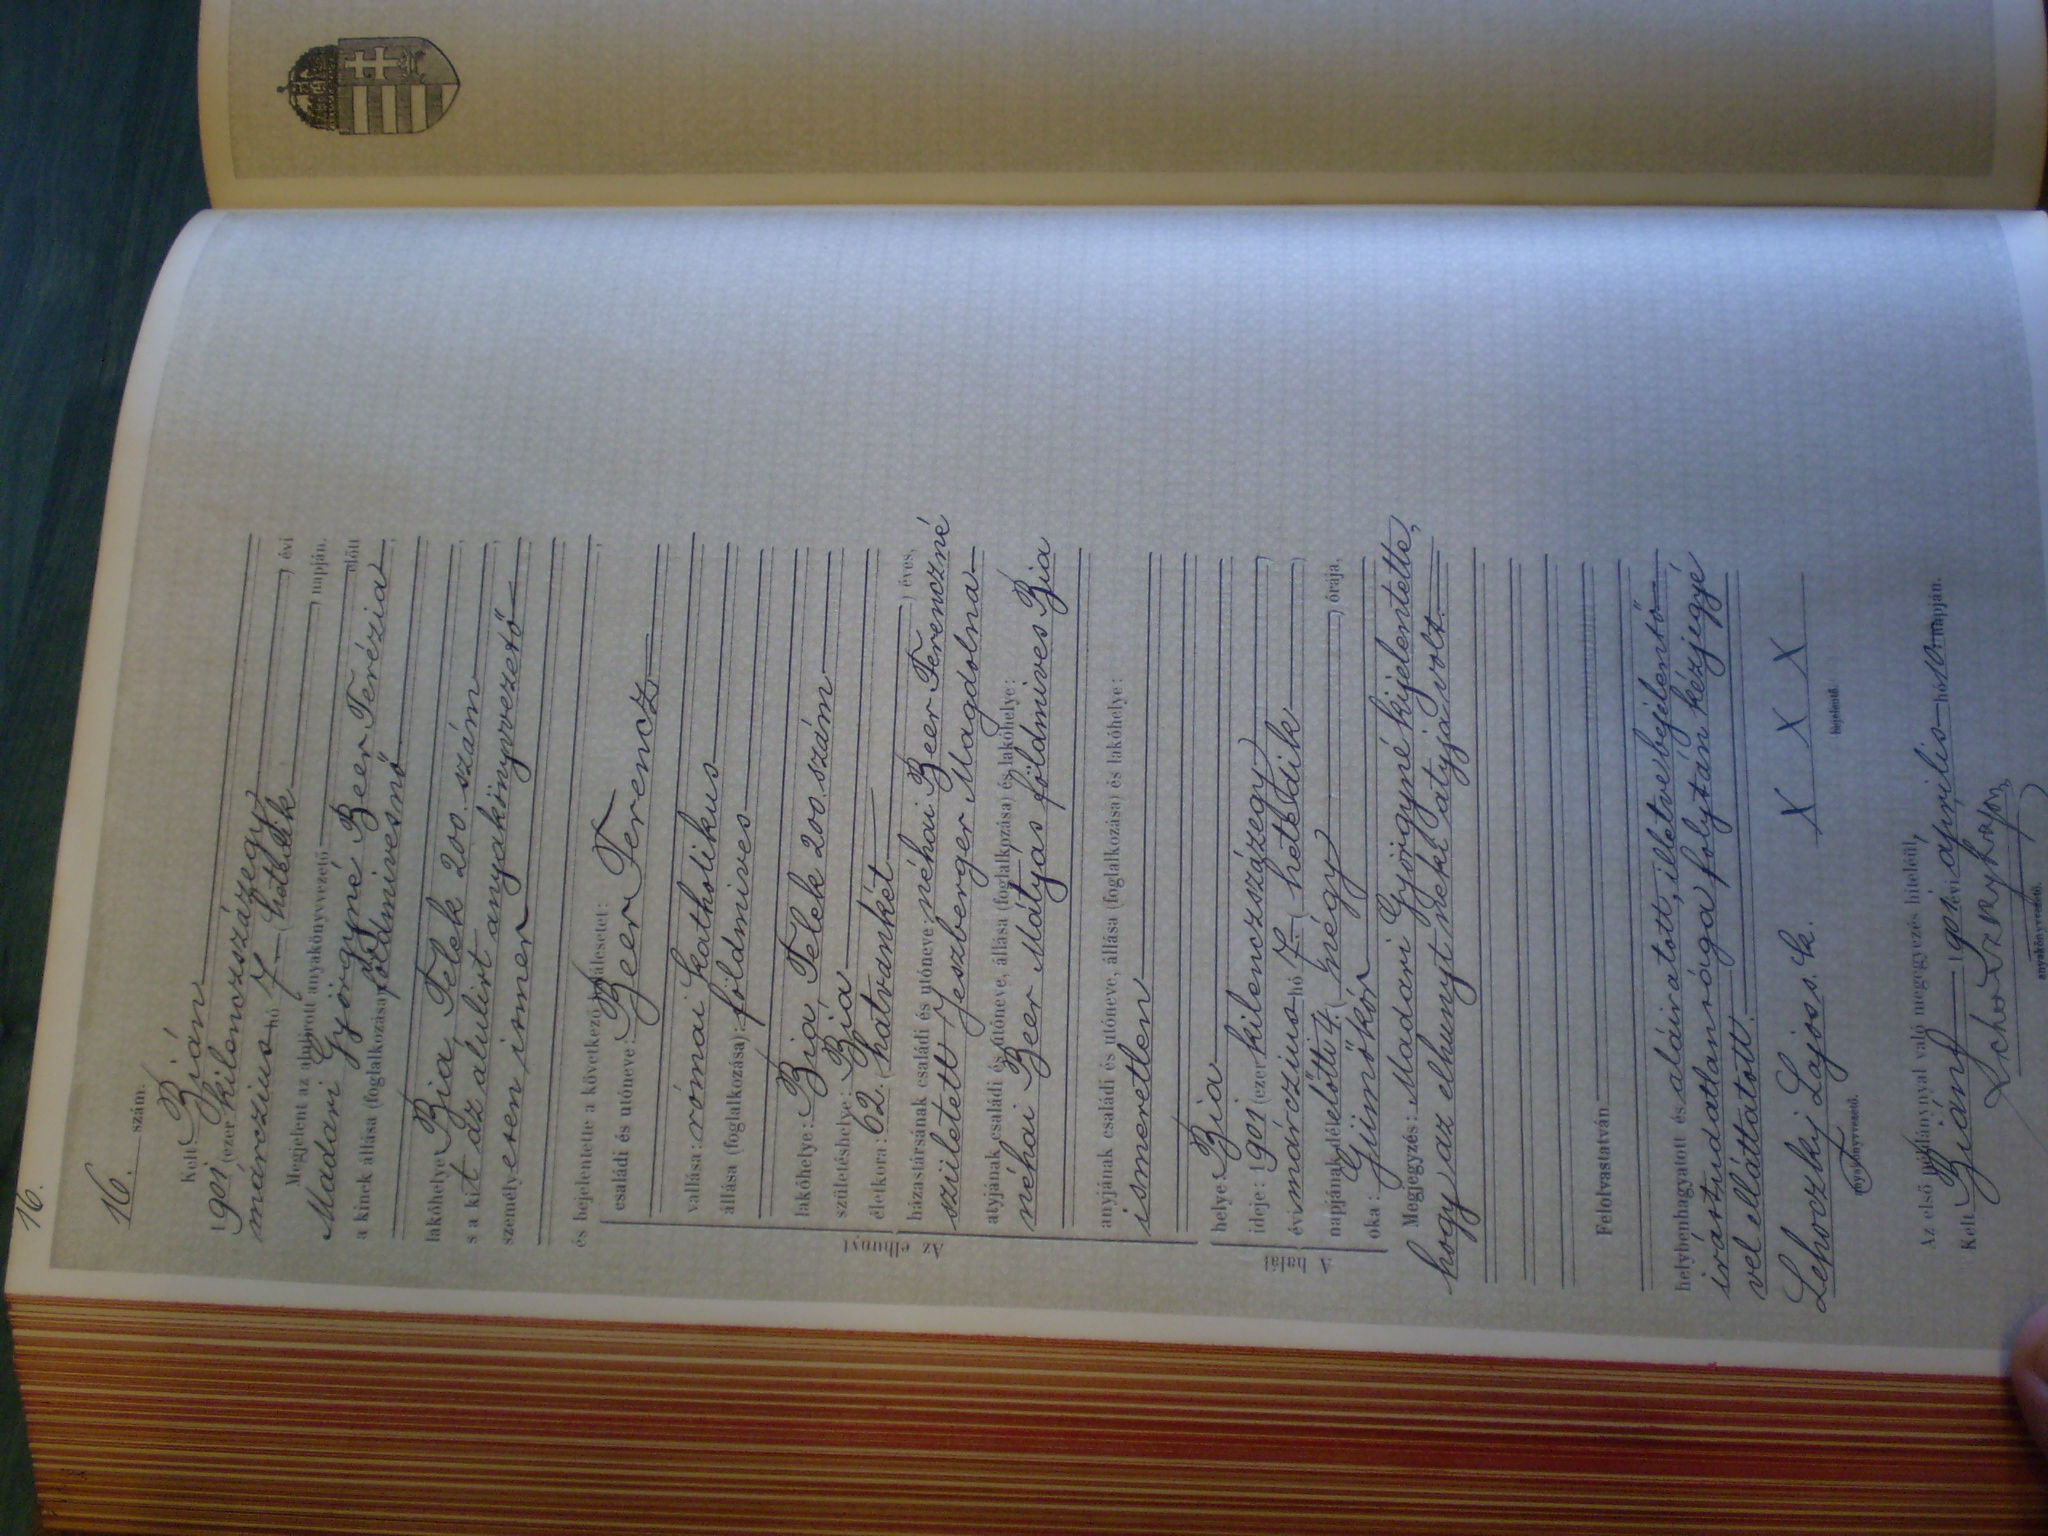 16.
16. szám.
Kelt Bián
1901 (ezer kilenczszázegy) évi
márczius hó 7 (hetedik) napján.
Megjelent az alulírott anyakönyvvezető előtt
Madari Györgyné Beer Terézia
a kinek állása (foglalkozása) földmivesnő
lakóhelye Bia, Telek 200. szám
s a kit az alulirt anyakönyvvezető
személyesen ismer,
és bejelentette a következő halálesetet:
családi és utóneve: Beer Ferencz
vallása: római katholikus
állása (foglalkozása): földmives
Az elhunyt
lakóhelye: Bia, Telek 200. szám
születéshelye: Bia
életkora: 62. (hatvankét) éves,
házastársának családi és utóneve: néhai Beer Ferenczné
született Jeszberger Magdolna
atyjának családi és utóneve, állása (foglalkozása) és lakóhelye:
néhai Beer Mátyas földmives Bia
anyjának családi és utóneve, állása (foglalkozása) és lakóhelye:
ismeretlen
A halál
helye: Bia
ideje: 1901 (ezer kilenczszázegy)
évi márczius hó 7. (hetedik)
napjának délelőtti 4. (négy) órája,
oka: Gümőkór
Megjegyzés: Madari Györgyné kijelentette,
hogy az elhunyt neki atyja volt.
Felolvastatván
helybenhagyatott és aláiratott, illetve bejelentő
irástudatlansága folytán kézjegyé
vel elláttatott.
Lehoczky Lajos s. k. X X X
anyakönyvvezető. bejelentő.
Az első példánynyal való megegyezés hiteléül,
Kelt Bián 1901 évi aprilis hó 10 napján.
anyakönyvvezető.